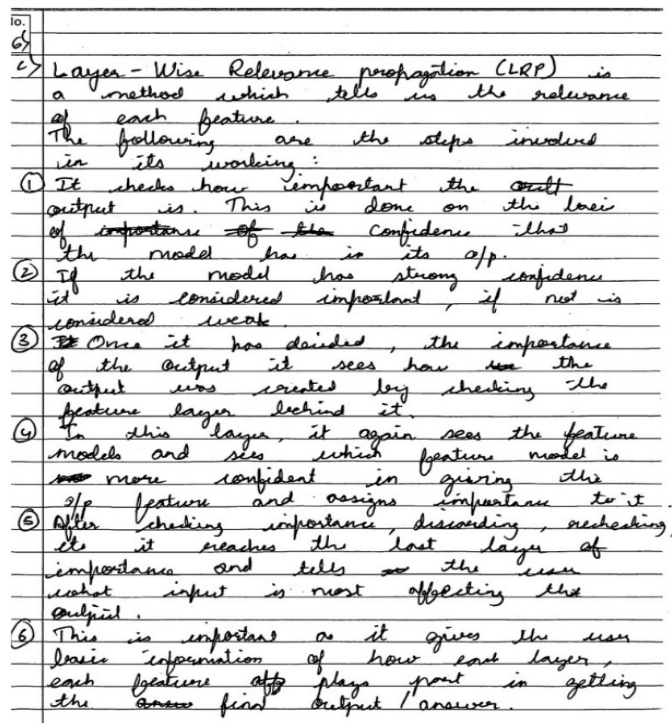 No.
6)
c) Layer - Wise Relevance propagation (LRP) is
a method which tells us the relevance
of each feature.
The following are the steps involved
in its working :
① It checks how important the
output is. This is done on the basis
of importance of the confidence that
the model has in its o/p.
② If the model has strong confidence
it is considered important, if not is
considered weak.
③ It Once it has decided, the importance
of the output it sees how the
output was created by checking the
feature layer behind it.
④ In this layer, it again sees the feature
models and sees which feature model is
more confident in giving the
o/p feature and assigns importance to it
⑤ After checking importance, discarding, rechecking
etc it reaches the last layer of
importance and tells the user
what input is most affecting the
output.
⑥ This is important as it gives the user
basic information of how each layer,
each feature plays part in getting
the final output / answer.